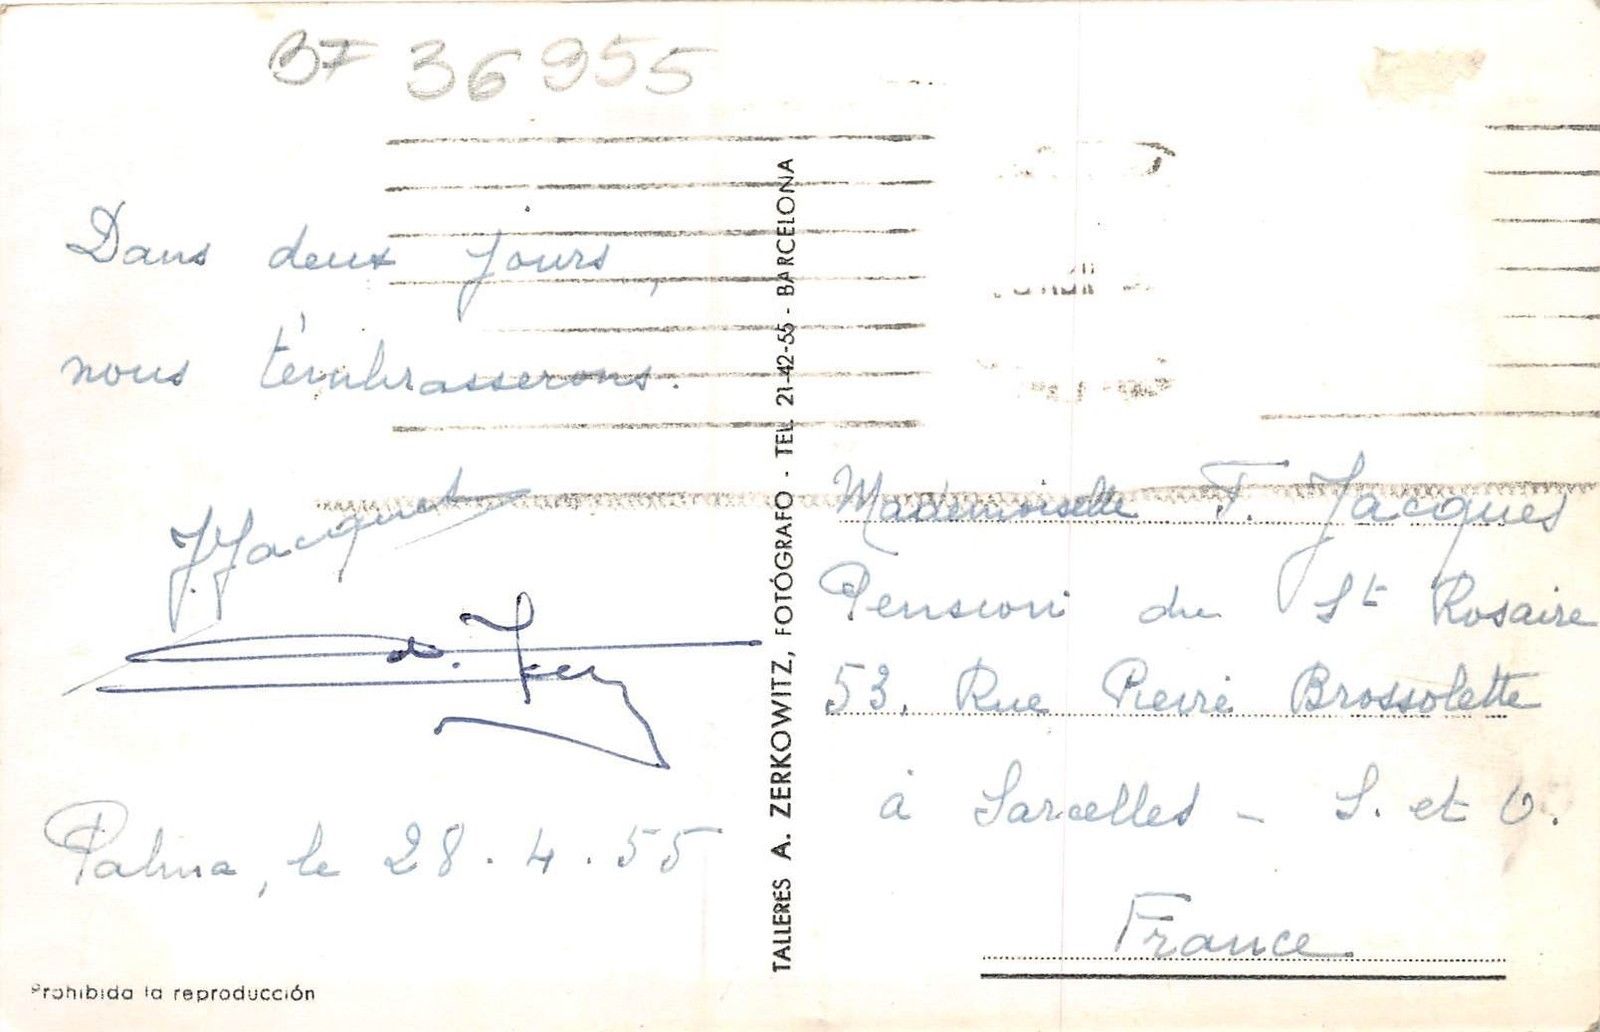 BF 36955
Dans deux jours,
nous t'embrasserons.
J. Jacques
Palma, le 28.4.55
Prohibida la reproducción
TALLERES A. ZERKOWITZ, FOTÓGRAFO - TEL. 21-42-55 - BARCELONA
Mademoiselle F. Jacques
Pension du St Rosaire
53, Rue Pierre Brossolette
à Sarcelles - S. et O.
France